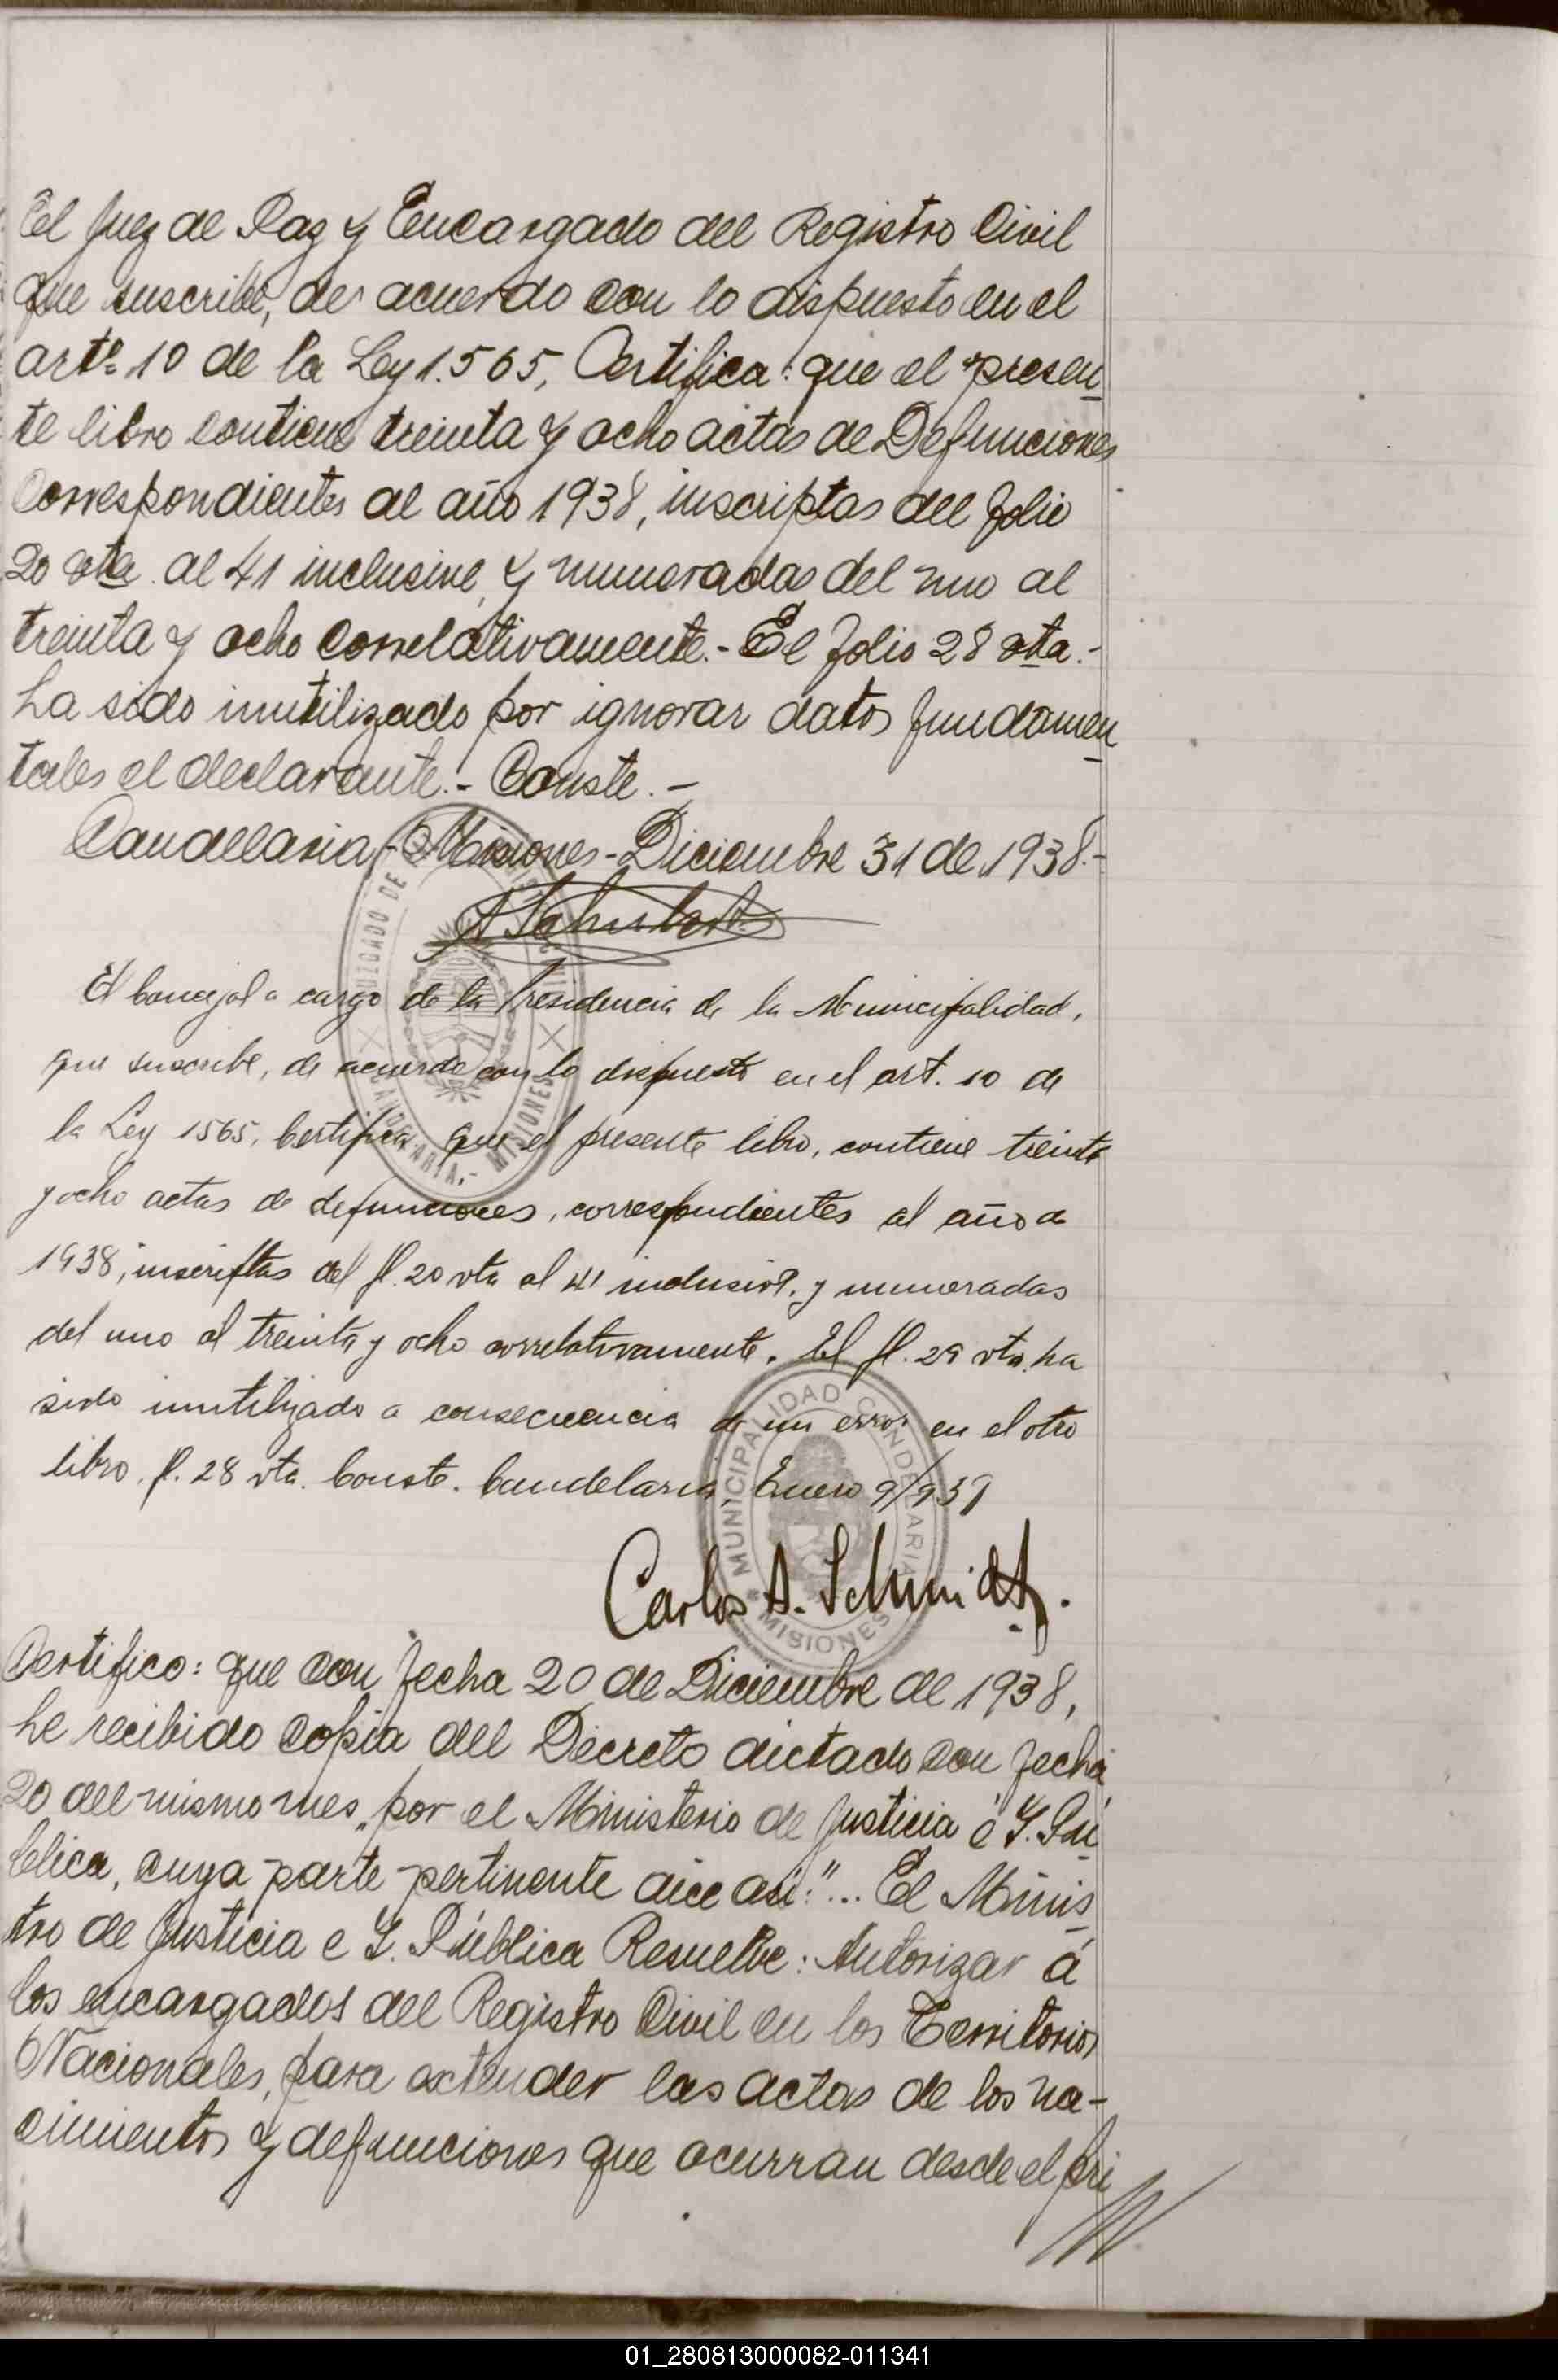 El Juez de Paz y Encargado del Registro Civil
que suscribe, de acuerdo con lo dispuesto en el
artº 10 de la Ley 1.565, Certifica: que el presen
te libro contiene treinta y ocho actas de Defunciones
Correspondientes al año 1938, inscriptas del folio
20 vta. al 41 inclusive, y numeradas del uno al
treinta y ocho correlativamente.- El folio 28 vta.-
ha sido inutilizado por ignorar datos fundamen
tales el declarante.- Conste.-
Candelaria, Misiones - Diciembre 31 de 1938.-
JUZGADO DE
CANDELARIA.- MISIONES
El Concejal a cargo de la Presidencia de la Municipalidad,
que suscribe, de acuerdo con lo dispuesto en el art. 10 de
la Ley 1565, Certifica que el presente libro, contiene treinta
y ocho actas de defunciones, correspondientes al año de
1938, inscriptas del fl. 20 vta al 41 inclusive, y numeradas
del uno al treinta y ocho correlativamente. El fl. 29 vta. ha
sido inutilizado a consecuencia de un error en el otro
libro, fl. 28 vta. Conste. Candelaria, Enero 9/939
MUNICIPALIDAD CANDELARIA
MISIONES
Carlos A. Schmidt.
Certifico: que con fecha 20 de Diciembre de 1938,
he recibido copia del Decreto dictado con fecha
20 del mismo mes, por el Ministerio de Justicia é I. Pú
blica, cuya parte pertinente dice así: "... El Minis
tro de Justicia e I. Pública Resuelve: Autorizar á
los encargados del Registro Civil en los Territorios
Nacionales, para extender las actas de los na-
cimientos y defunciones que ocurran desde el pri
01_280813000082-011341